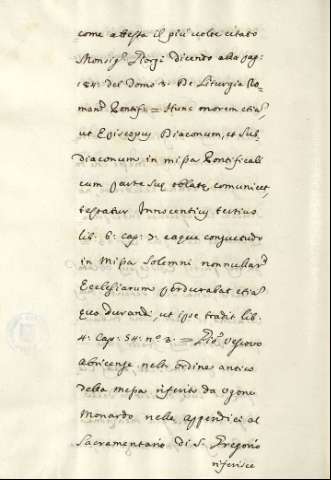 come attesta il più volte citato
Monsig.r Giorgi dicendo alla pag:
184: del Tomo 3: De Liturgia Ro-
mani Pontif: = Hunc morem etia,
ut Episcopus Diaconum, et Sub-
diaconum in missa Pontificali
cum parte suę oblatę, comunicet,
testatur Innocentius tertius
lib: 6: cap: 7: eaque consuetudo
in missa solemni nonnullar
Ecclesiarum perdurabat etia
ęvo Durandi, ut ipse tradit lib.
4: Cap: 54: n.o 3: = Vescovo
Abricense nell' ordine antico
della messa riferito da Ugone
Monardo nelle appendici al
Sacramentario di S. Gregorio
riferisce